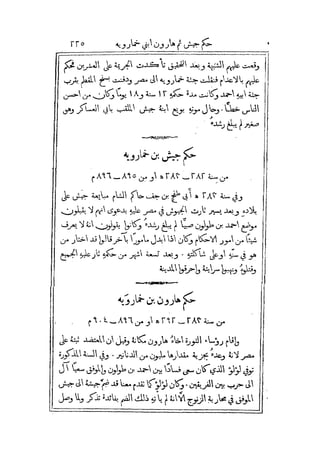 حكم جيش ثم هارون ابني خمارويه ٢٢٥
وقعت عليهم الشبهة وبعد التحقيق تأكدت الجريمة على العشرين فحكم
عليهم بالاعدام فنقلت جثة خمارويه الى مصر ودفنت بسفح المقطم بقرب
جثة ابيه احمد وكانت مدة حكمه ١٢ سنة و١٨ يومًا وكان من احسن
الناس خطًّا. وحال موته بويع ابنه جيش الملقب بابي العساكر وهو
صغير لم يبلغ رشده
حكم جيش بن خمارويه
من سنة ٢٨٢ – ٢٨٣ ه او من ٨٩٥ – ٨٩٦ م
وفي سنة ٢٨٣ ه أبى طغج بن جف حاكم الشام مبايعة جيش على
بلاده وبعد يسير ثارت الجيوش في مصر عليه بدعوى انهم لا يقبلون
موضع احمد بن طولون صبيًّا لم يبلغ رشده وكانوا يقولون انه لا يعرف
شيئًا من امور الاحكام وكان اذا ابدل مأمورًا بآخر قالوا قد اختار من
هو في سنه او على شاكلته. وبعد تسعة اشهر من حكمه ثار عليه الجميع
وقتلوه ونهبوا سرايته واحرقوا المدينة
حكم هارون بن خمارويه
من سنة ٢٨٣ – ٢٩٢ ه او من ٨٩٦ – ٩٠٤ م
واقام رؤساء الثورة اخاه هارون مكانه وقبل ان المعتضد ثبته على
مصر لانه وعده بجزية مقدارها مليون من الدنانير. وفي السنة المذكورة
توفي لؤلؤ الذي كان سعى فسادًا بين احمد بن طولون والموفق سعيًا آل
الى حرب بين الفريقين. وكان لؤلؤ كما تقدم معنا قد ضم جيشه الى جيش
الموفق في محاربة الزنوج الا انه لم يأته ذلك الضم بفائدة تذكر ولما وصل